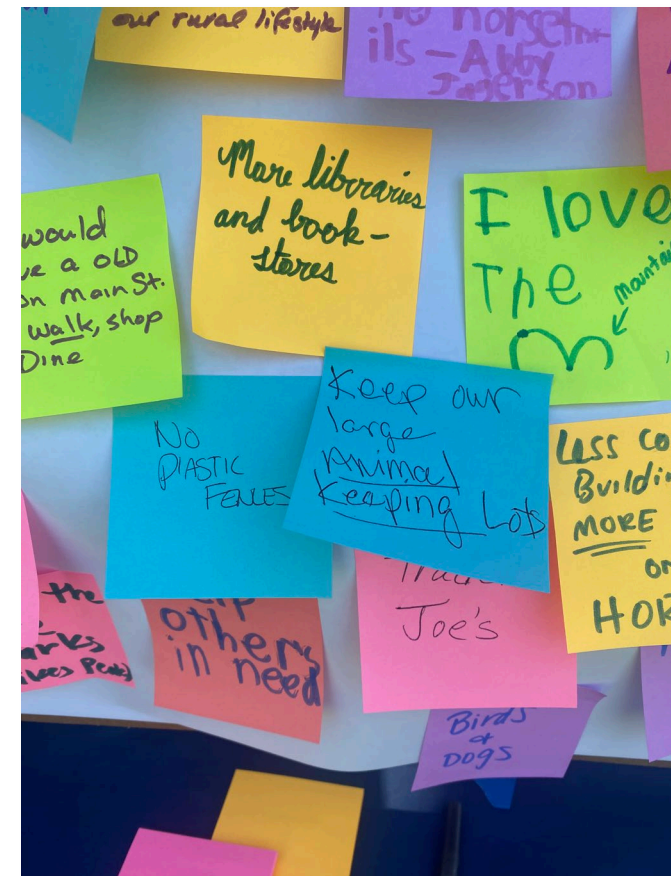 our rural lifestyle
horseh
ils - Abby
Jagerson
More libraries
and book-
stores
would
a OLD
on Main St.
walk, shop
Dine
I love
The
mountai
No
PLASTIC
FENCES
Keep our
large
Animal
Keeping Lots
Less Co
Buildin
MORE
on
HOR
Joe's
the
arks
Peak)
others
in need
Birds
&
DOGS